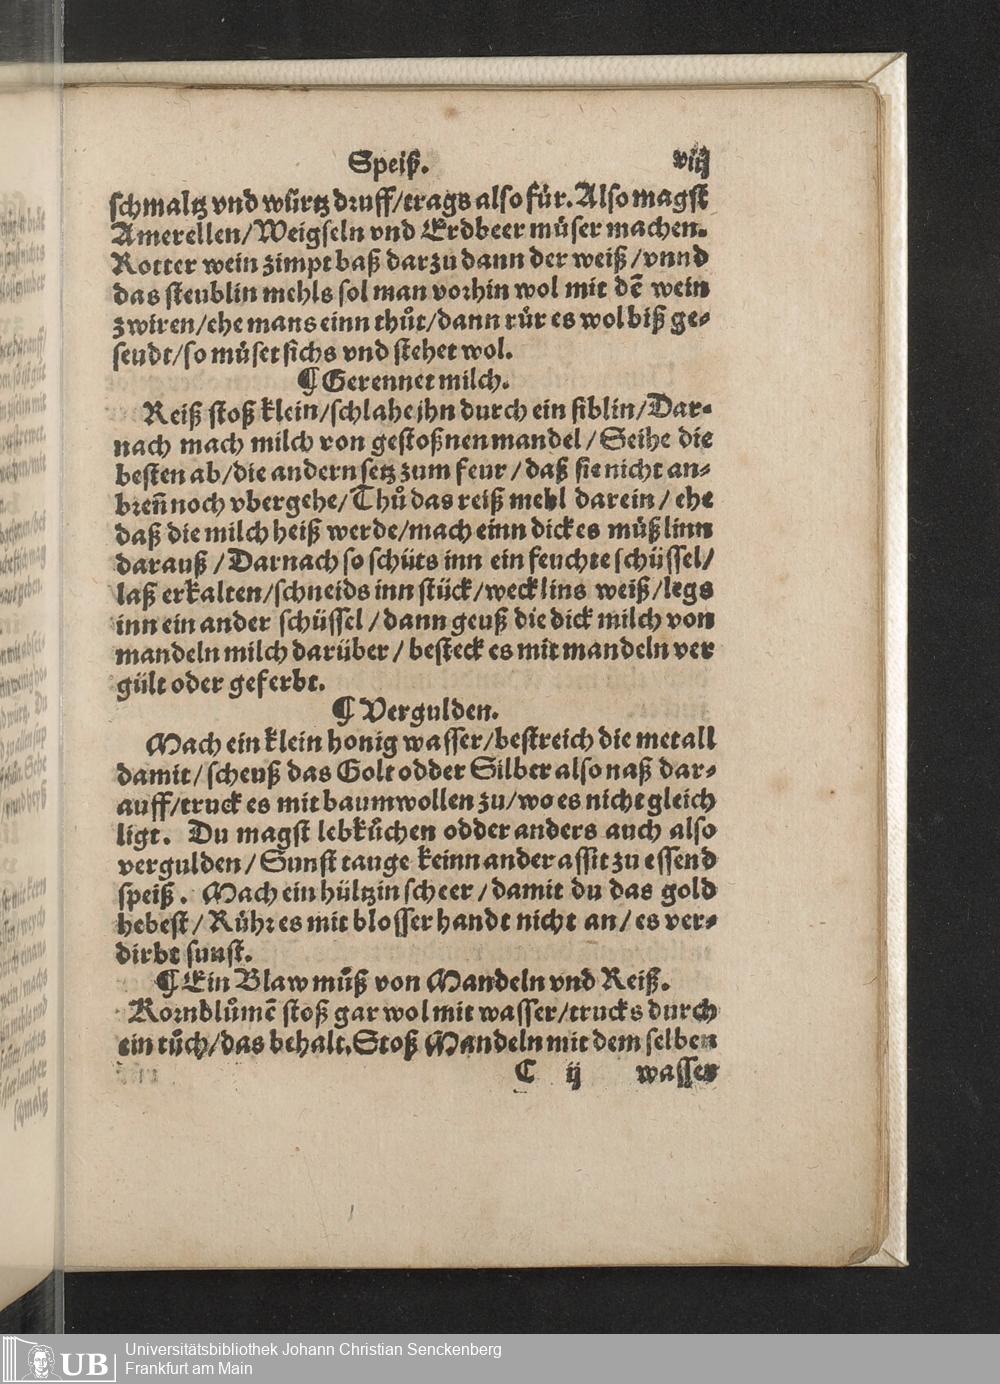 Speiß. viij
schmaltz vnd würtz druff/trags also für. Also magst
Amerellen/Weigseln vnd Erdbeer müser machen.
Rotter wein zimpt baß darzu dann der weiß/vnnd
das steublin mehls sol man vorhin wol mit dē wein
zwiren/ehe mans einn thůt/dann rür es wol biß ge-
seudt/so müset sichs vnd stehet wol.
¶ Gerennet milch.
Reiß stoß klein/schlahe jhn durch ein siblin/Dar-
nach mach milch von gestoßnen mandel/Seihe die
besten ab/die andern setz zum feur/daß sie nicht an-
breñ noch vbergehe/Thů das reiß mehl darein/ehe
daß die milch heiß werde/mach einn dickes müßlinn
darauß/Darnach so schüts inn ein feuchte schüssel/
laß erkalten/schneids inn stück/wecklins weiß/legs
inn ein ander schüssel/dann geuß die dick milch von
mandeln milch darüber/besteck es mit mandeln ver
gült oder geferbt.
¶ Vergulden.
Mach ein klein honig wasser/bestreich die metall
damit/scheuß das Golt odder Silber also naß dar-
auff/truck es mit baumwollen zu/wo es nicht gleich
ligt. Du magst lebküchen odder anders auch also
vergulden/Sunst tauge keinn ander assit zu essend
speiß. Mach ein hültzin scheer/damit du das gold
hebest/Rühr es mit blosser handt nicht an/es ver-
dirbt sunst.
¶ Ein Blaw müß von Mandeln vnd Reiß.
Kornblůmē stoß gar wol mit wasser/trucks durch
ein tůch/das behalt. Stoß Mandeln mit dem selben
C ij wasser
UB Universitätsbibliothek Johann Christian Senckenberg
Frankfurt am Main